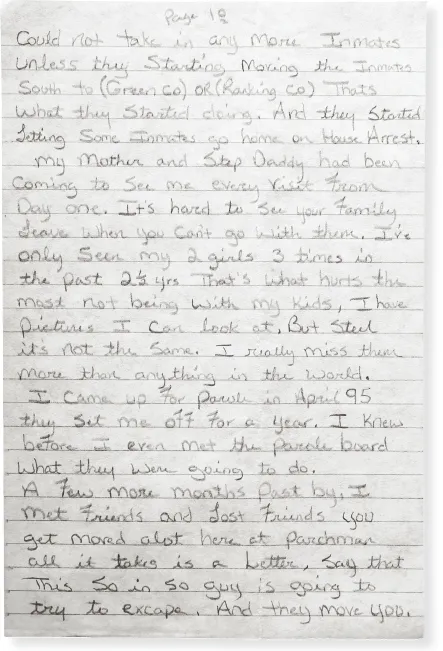 Page 18
Could not take in any more Inmates
unless they Starting Moving the Inmates
South to (Green Co) OR (Ranking Co) Thats
what they Started doing. And they Started
Letting Some Inmates go home on House Arrest.
my Mother and Step Daddy had been
Coming to See me every Visit From
Day one. It's hard to See your Family
Leave when you Can't go with them. I've
only Seen my 2 girls 3 times in
the past 2½ yrs That's what hurts the
most not being with my kids, I have
pictures I Can look at, But Steel
it's not the Same. I really miss them
more than anything in the world.
I Came up For parole in April 95
they Set me off For a year. I Knew
before I even met the parole board
what they were going to do.
A Few more months past by, I
met Friends and Lost Friends you
get moved alot here at Parchman
all it takes is a Letter, Say that
This So in So guy is going to
try to excape. And they move you.